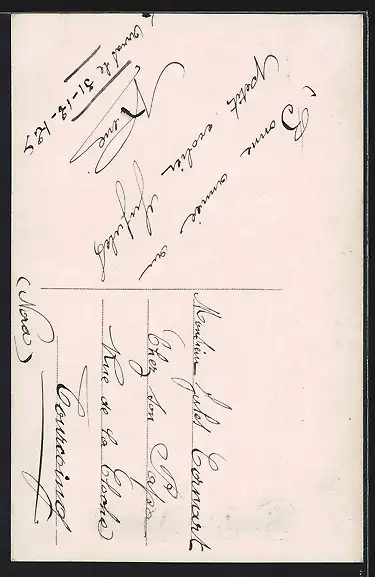 Bonne année au
petit écolier
Jules
René
31-12-1925
Monsieur Jules Cornart
Chez son Papa
Rue de la Cloche
Tourcoing
(Nord)